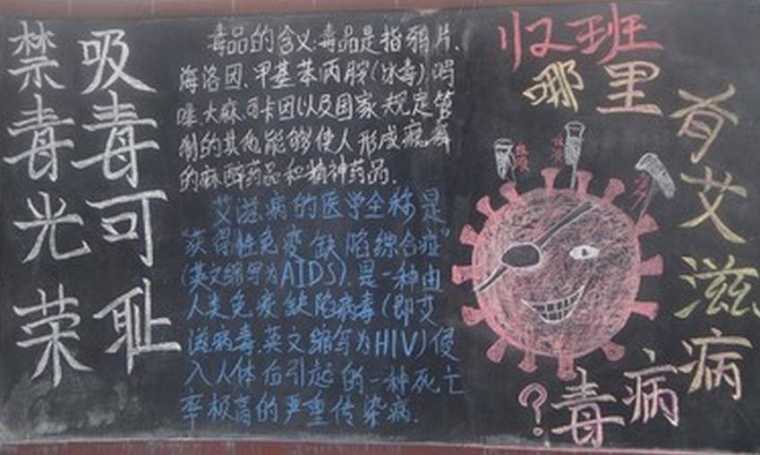 吸毒可耻
禁毒光荣
毒品的含义:毒品是指鸦片、
海洛因、甲基苯丙胺(冰毒)、吗
啡、大麻、可卡因以及国家规定管
制的其他能够使人形成瘾癖
的麻醉药品和精神药品.
艾滋病的医学全称是
"获得性免疫缺陷综合症"
(英文缩写为AIDS).是一种由
人类免疫缺陷病毒(即艾
滋病毒.英文缩写为HIV)侵
入人体后引起的一种死亡
率极高的严重传染病.
哪里
有艾滋病
病毒?